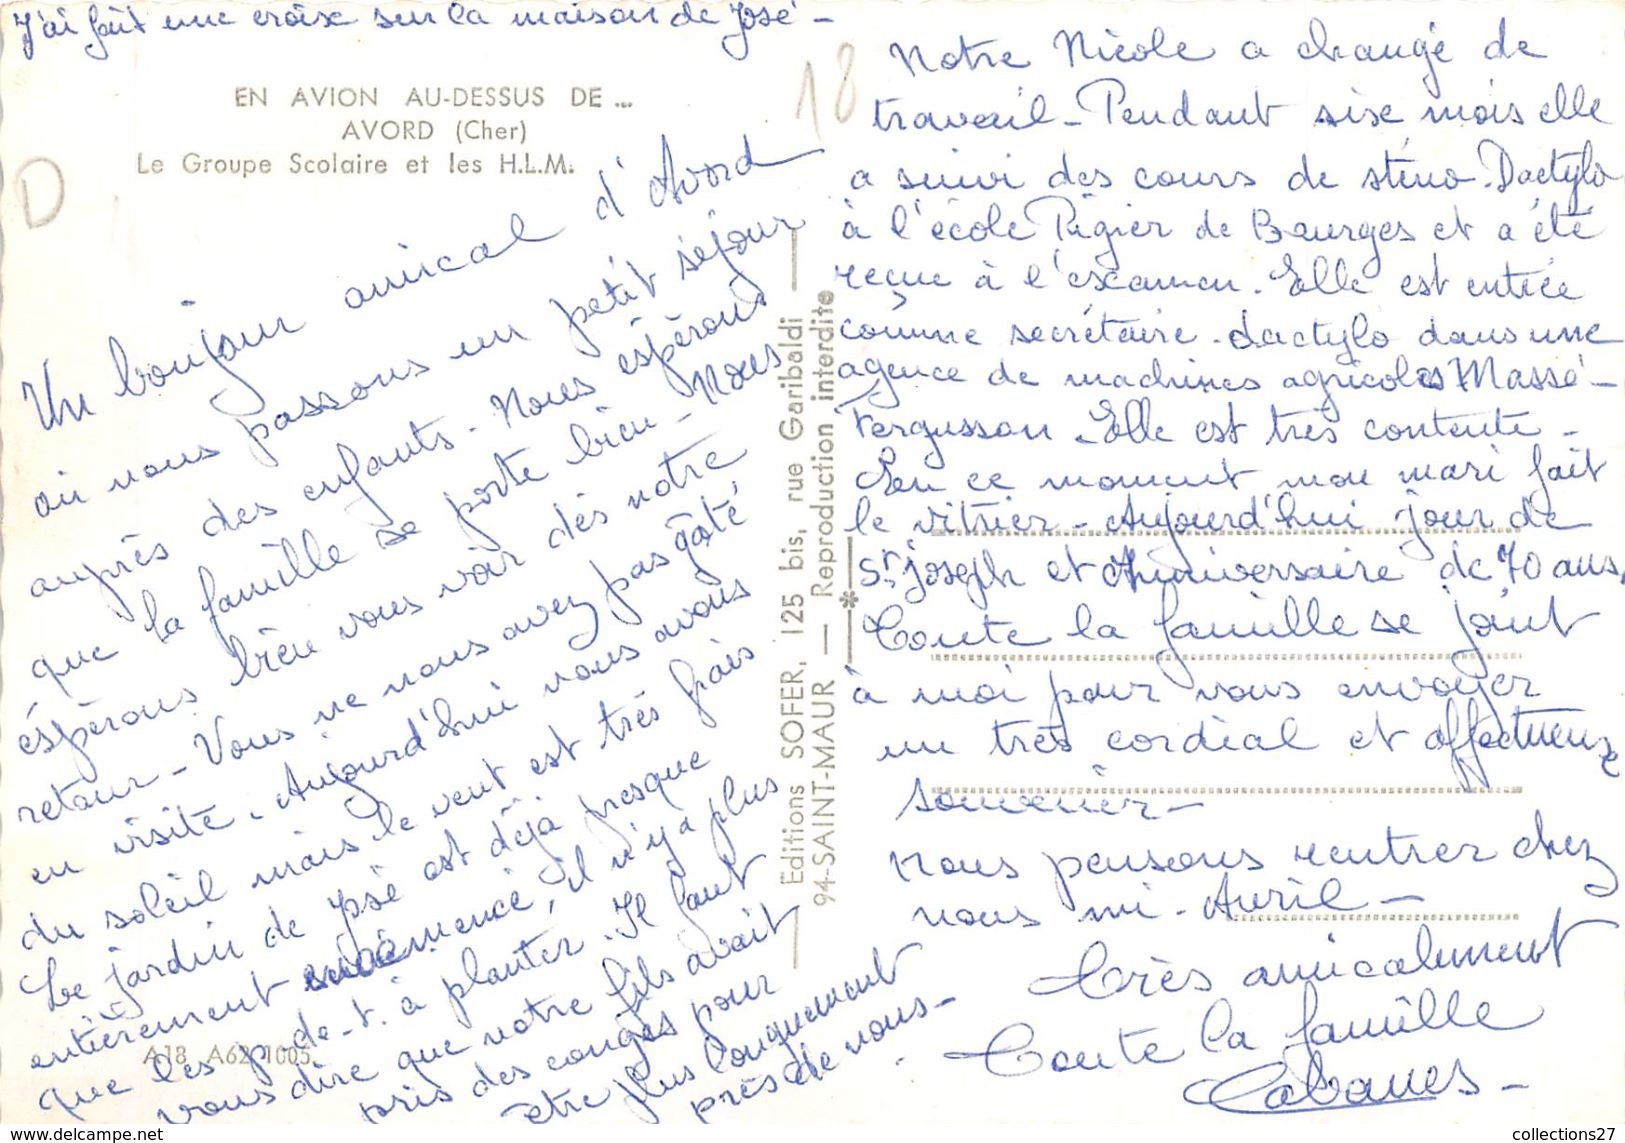 J'ai fait une croix sur la maison de José -
EN AVION AU-DESSUS DE ...
AVORD (Cher)
Le Groupe Scolaire et les H.L.M.
D
18
Un bonjour amical d'Avord
où nous passons un petit séjour
auprès des enfants. Nous espérons
que la famille se porte bien - Nous
espérons bien vous voir dès notre
retour - Vous ne nous avez pas gâté
en visite. Aujourd'hui nous avons
du soleil mais le vent est très frais
Le jardin de José est déjà presque
entièrement enémencé, il n'y a plus
que les p-de-t. à planter. Il faut
vous dire que notre fils avait
pris des congés pour
être plus longuement
près de nous -
A18 A62 1005
Editions SOFER, 125 bis, rue Garibaldi
94-SAINT-MAUR — Reproduction interdite
Notre Nicole a changé de
travail - Pendant six mois elle
a suivi des cours de sténo-Dactylo
à l'école Pigier de Bourges et a été
reçue à l'examen. Elle est entrée
comme secrétaire-dactylo dans une
agence de machines agricoles Massé-
Fergusson - Elle est très contente -
En ce moment mon mari fait
le vitrier - Aujourd'hui jour de
St Joseph et Anniversaire de 70 ans,
Toute la famille se joint
à moi pour vous envoyer
un très cordial et affectueux
souvenir -
Nous pensons rentrer chez
nous mi-Avril -
Très amicalement
Toute la famille
Cabanes -
collections27